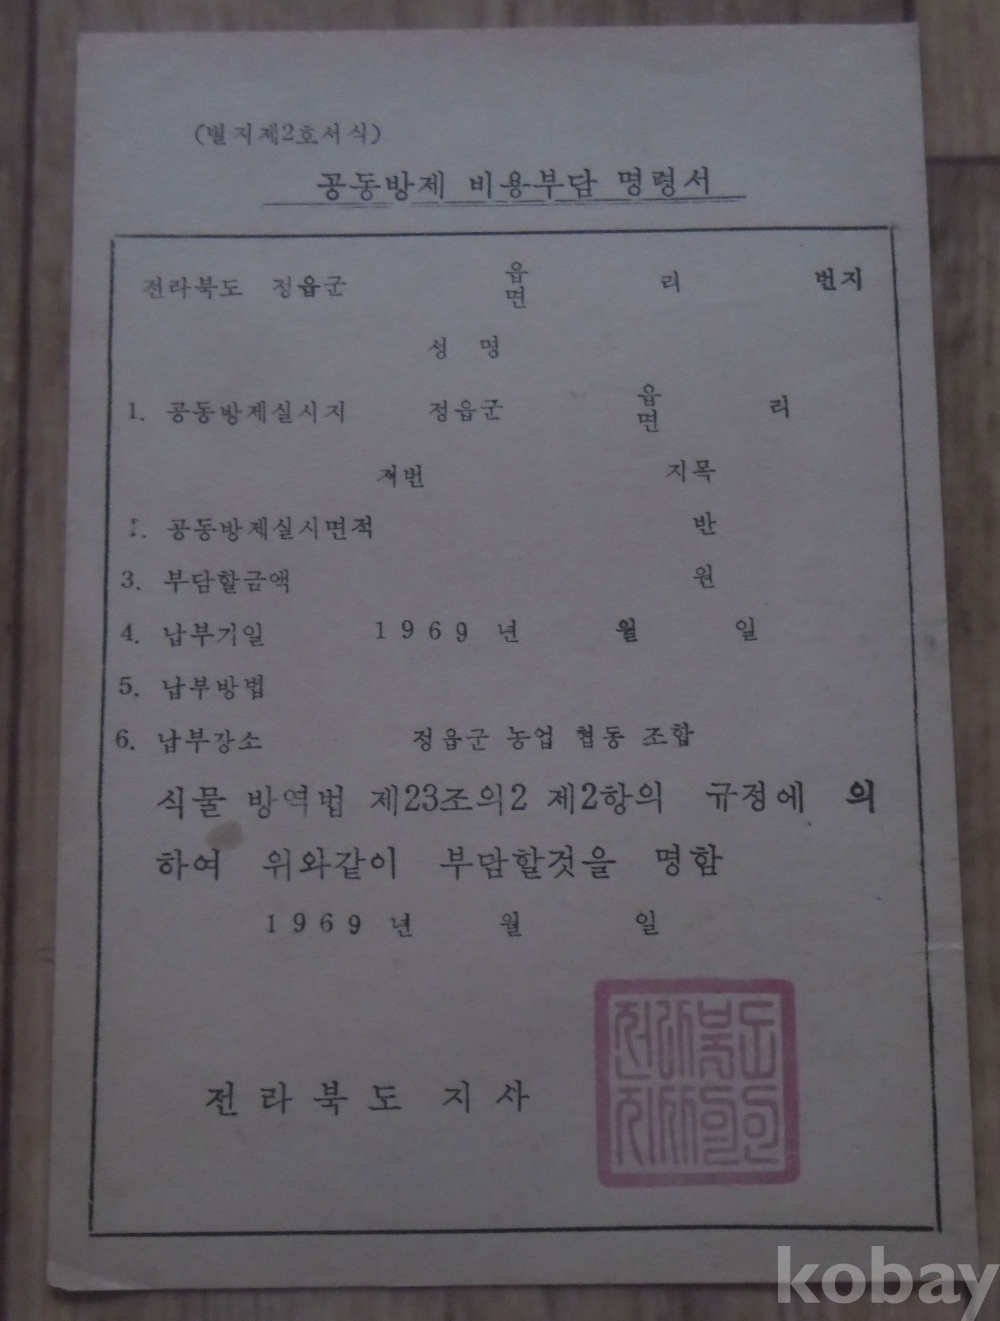 (별지제2호서식)
공동방제 비용부담 명령서
전라북도 정읍군 읍면 리 번지
성 명
1. 공동방제실시지 정읍군 읍면 리
지번 지목
2. 공동방제실시면적 반
3. 부담할금액 원
4. 납부기일 1969년 월 일
5. 납부방법
6. 납부강소 정읍군 농업 협동 조합
식물 방역법 제23조의2 제2항의 규정에 의
하여 위와같이 부담할것을 명함
1969년 월 일
전라북도 지사
전라북도
지사의인
kobay